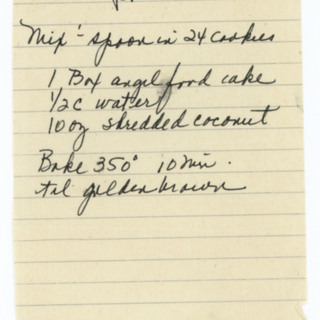 Mix - spoon in 24 cookies
1 Box angel food cake
1/2 C water
10 oz shredded coconut
Bake 350° 10 min.
til golden brown